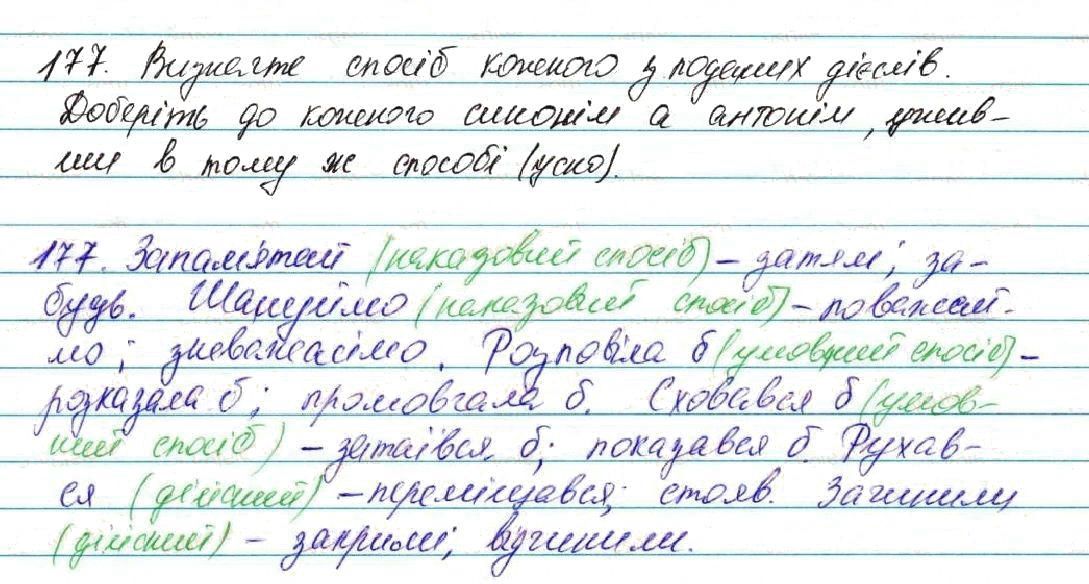 177. Визначте спосіб кожного з поданих дієслів.
Доберіть до кожного синонім а антонім, ужив-
ши в тому ж способі (усно).
177. Запам'ятай (наказовий спосіб) – затям; за-
будь. Шануймо (наказовий спосіб) – поважай-
мо; зневажаймо. Розповіла б (умовний спосіб) –
розказала б; промовчала б. Сховався б (умов-
ний спосіб) – затаївся б; показався б. Рухав-
ся (дійсний) – переміщався; стояв. Зачинили
(дійсний) – закрили; відчинили.